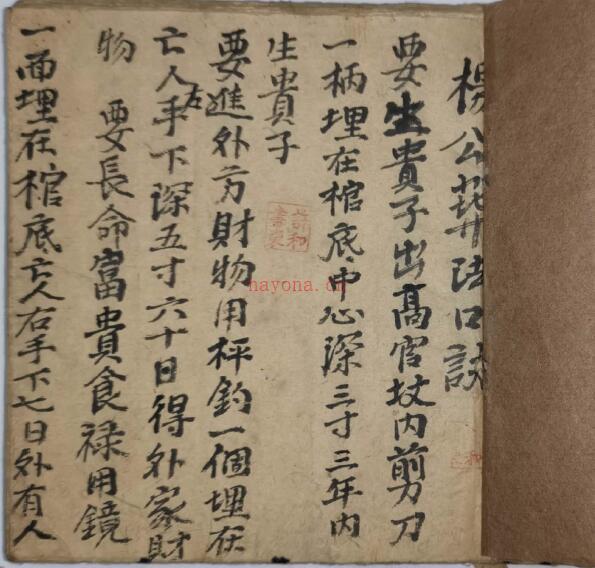 楊公葬法口訣
要生貴子出髙官坟内剪刀
一柄埋在棺底中心深三寸三年内
生貴子
要進外方財物用枰鈎一個埋在
亡人左手下深五寸六十日得外家財
物 要長命富貴食禄用鏡
一面埋在棺底亡人右手下七日外有人
nayona.cn